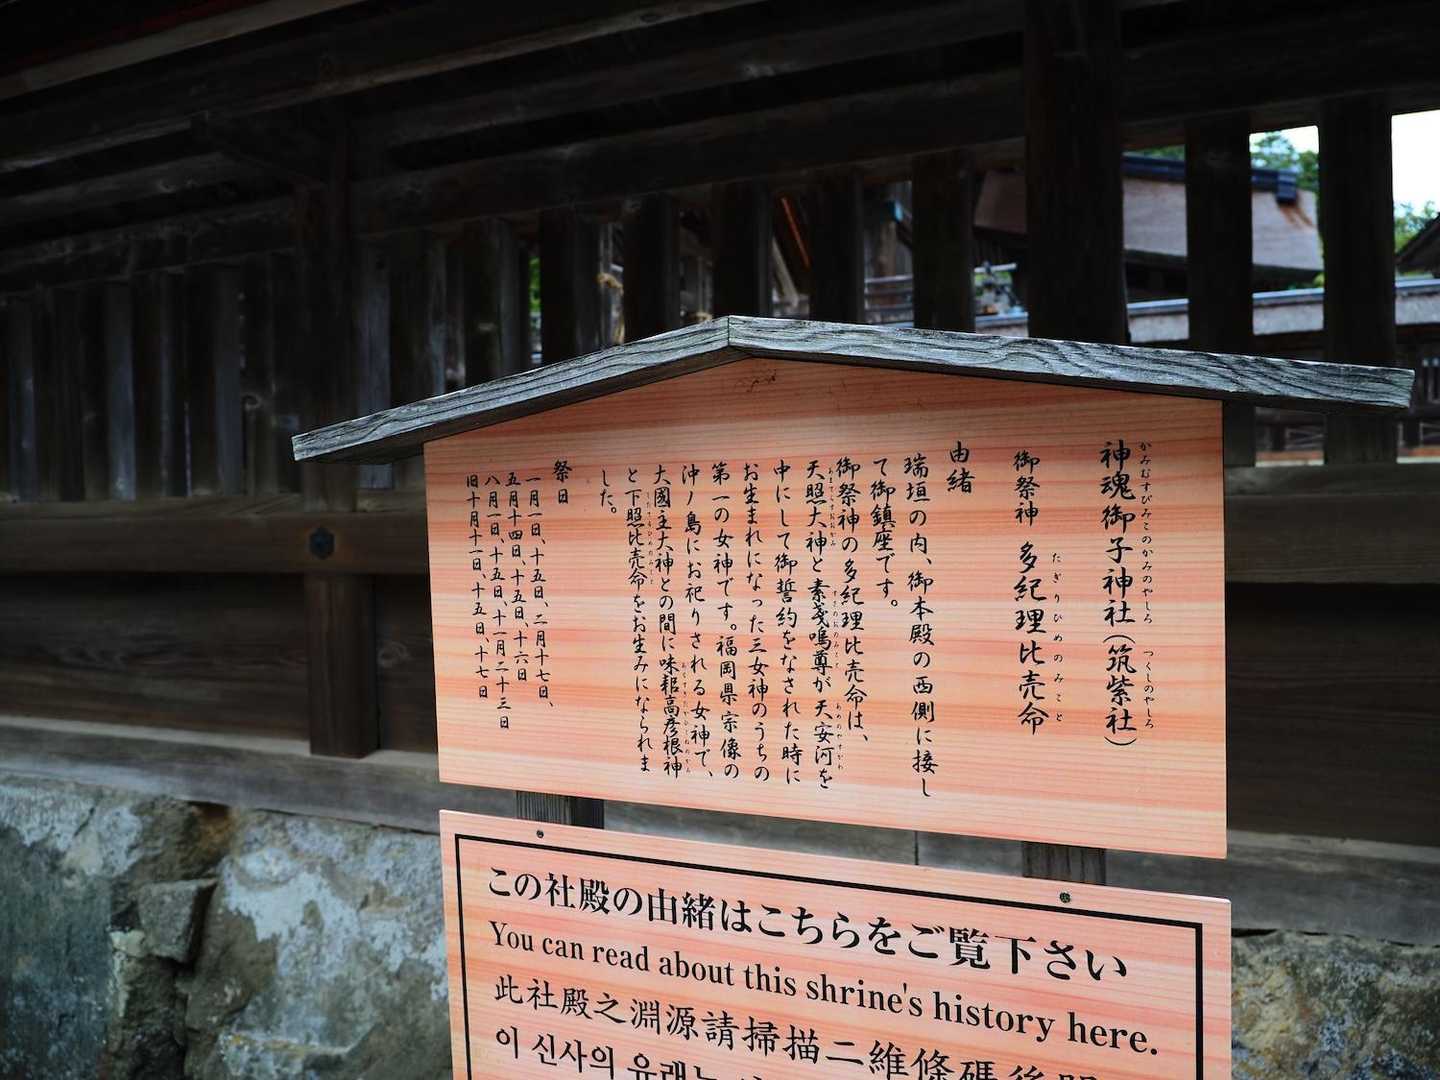 神魂御子神社(筑紫社)
かみむすびみこのかみのやしろ つくしのやしろ
御祭神 多紀理比売命
たぎりひめのみこと
由緒
瑞垣の内、御本殿の西側に接し
て御鎮座です。
御祭神の多紀理比売命は、
天照大神と素戔嗚尊が天安河を
中にして御誓約をなされた時に
お生まれになった三女神のうちの
第一の女神です。福岡県宗像の
沖ノ島にお祀りされる女神で、
大國主大神との間に味耜高彦根神
と下照比売命をお生みになられま
した。
祭日
一月一日、十五日、二月十七日、
五月十四日、十五日、十六日
八月一日、十五日、十一月二十三日
旧十月十一日、十五日、十七日
この社殿の由緒はこちらをご覧下さい
You can read about this shrine's history here.
此社殿之淵源請掃描二維條碼後
이 신사의 유래는